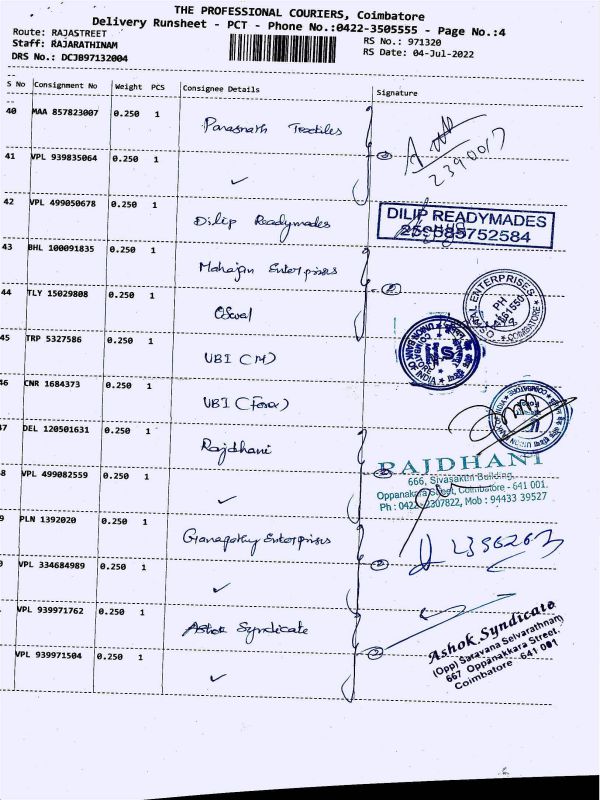 THE PROFESSIONAL COURIERS, Coimbatore
Delivery Runsheet - PCT - Phone No.:0422-3505555 - Page No.:4
Route: RAJASTREET
RS No.: 971320
Staff: RAJARATHINAM
RS Date: 04-Jul-2022
DRS No.: DCJB97132004
S No Consignment No Weight PCS Consignee Details Signature
40 MAA 857823007 0.250 1 Parasnath Textiles
41 VPL 939835064 0.250 1 ✓ ②
239007
42 VPL 499050678 0.250 1 Dilip Readymades
DILIP READYMADES
43 BHL 100091835 0.250 1 Mahajan Enterprises
44 TLY 15029808 0.250 1 Oswal ②
ENTERPRISES
PH
COIMBATORE
45 TRP 5327586 0.250 1 UBI (M)
UNION BANK OF INDIA
46 CNR 1684373 0.250 1 UBI (Forex)
47 DEL 120501631 0.250 1 Rajdhani
RAJDHANI
666, Sivasakthi Building,
Oppanakara Street, Coimbatore - 641 001.
Ph : 0422-2307822, Mob : 94433 39527
8 VPL 499082559 0.250 1 ✓ ②
9 PLN 1392020 0.250 1 Ganapathy Enterprises
0 VPL 334684989 0.250 1 ✓ ②
VPL 939971762 0.250 1 Ashok Syndicate
VPL 939971504 0.250 1 ✓ ②
Ashok Syndicate
(Opp) Saravana Selvarathnam
667 Oppanakkara Street,
Coimbatore 641 001